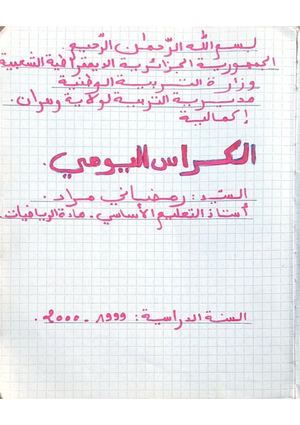 بسم الله الرحمان الرحيم.
الجمهورية الجزائرية الديمقراطية الشعبية
وزارة التربية الوطنية
مديرية التربية لولاية وهران.
إكمالية
الكراس اليومي.
السيد: رمضاني مراد.
أستاذ التعليم الأساسي. مادة الرياضيات
السنة الدراسية: 1999 - 2000.